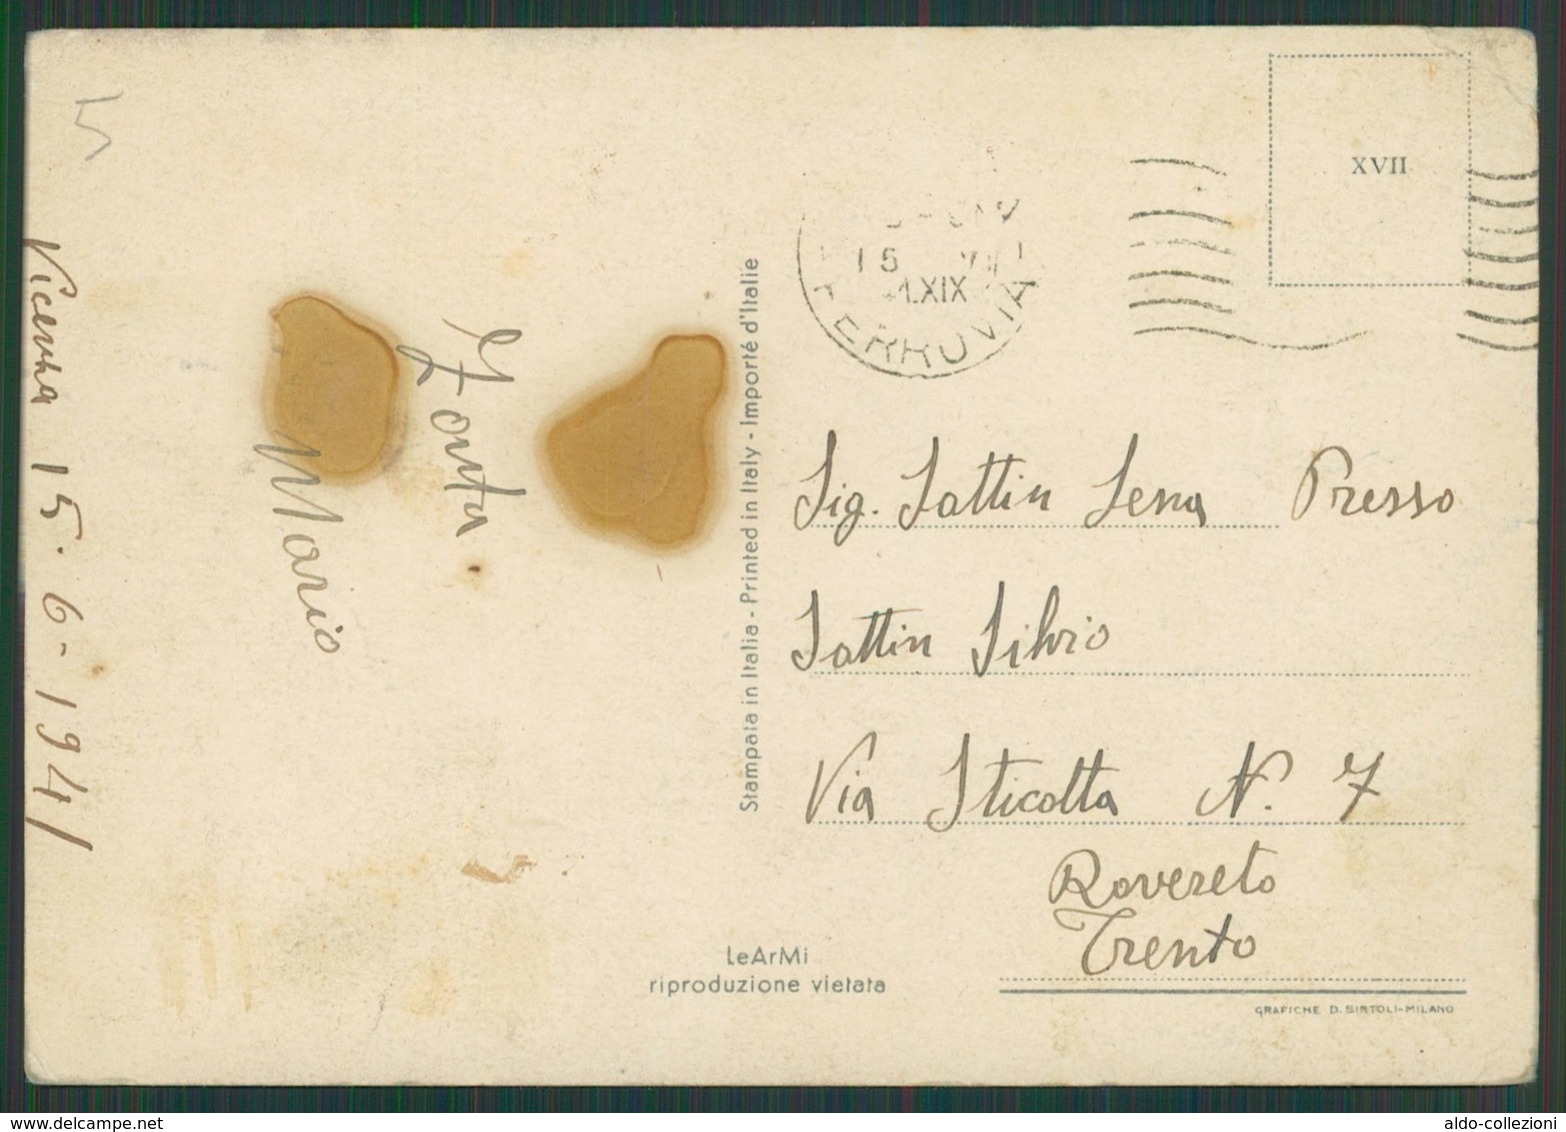 Vicenza 15-6-1941
Zonta
Mario
Stampata in Italia - Printed in Italy - Importé d'Italie
XVII
15
XIX
FERROVIA
Sig. Sattin Lena Presso
Sattin Silvio
Via Sticotta N. 7
Rovereto
Trento
LeArMi
riproduzione vietata
GRAFICHE D. SIRTOLI-MILANO
aldo-collezioni